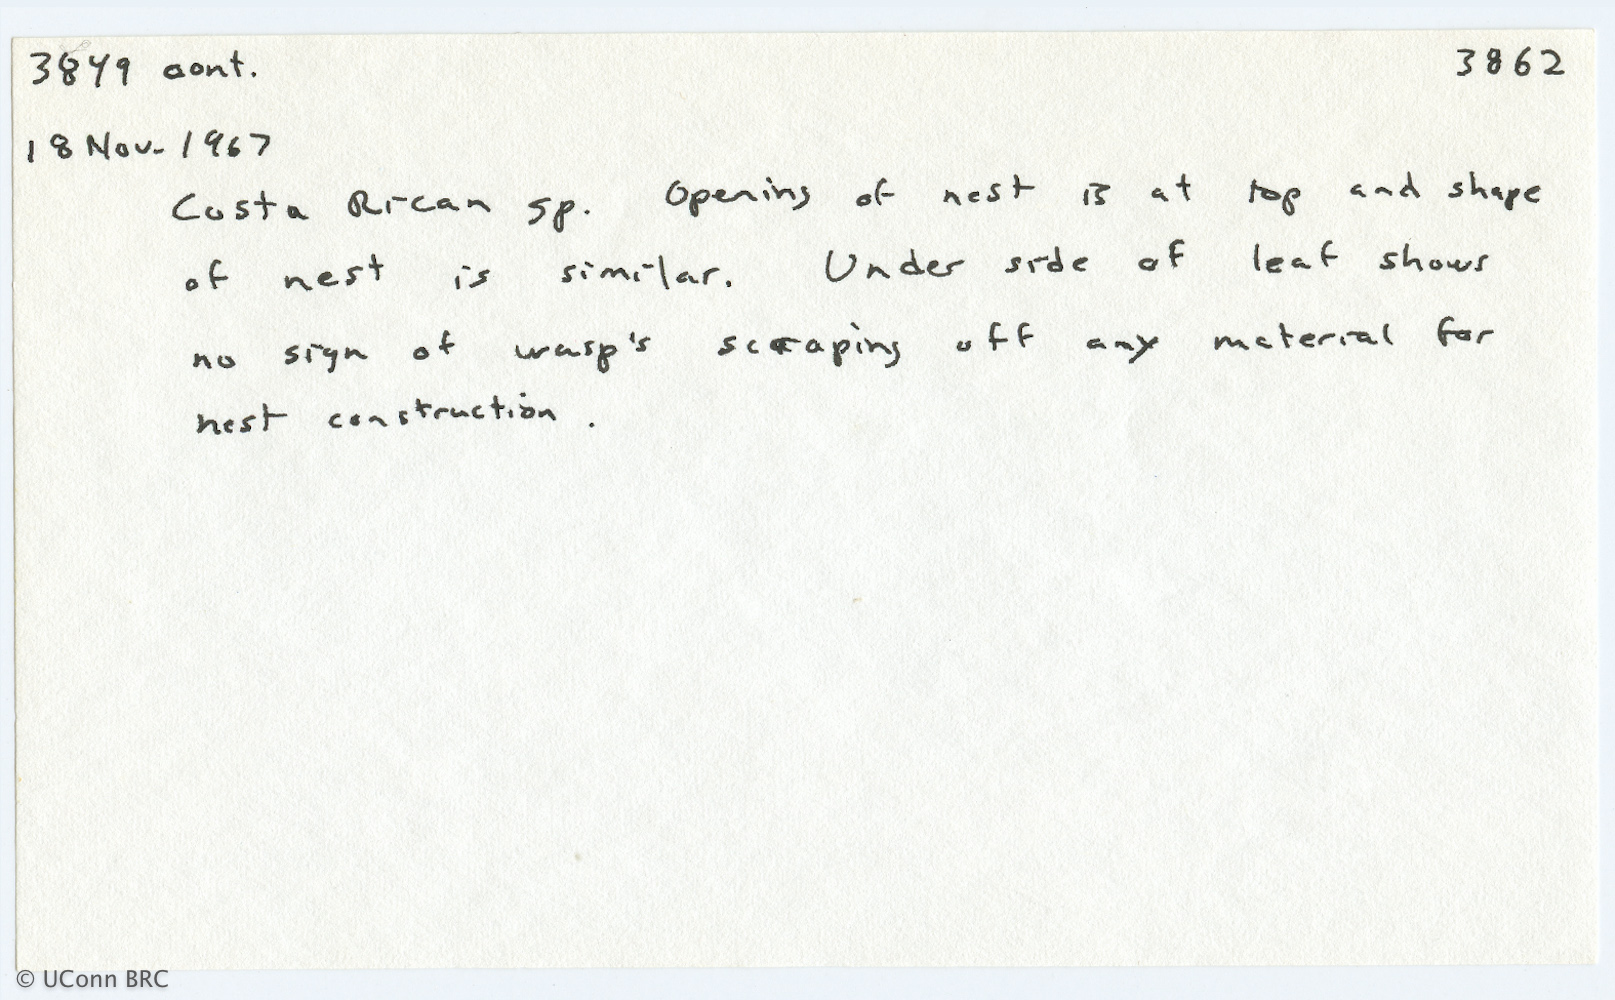 3849 cont.
3862
18 Nov. 1967
Costa Rican sp. Opening of nest is at top and shape
of nest is similar. Under side of leaf shows
no sign of wasp's scraping off any material for
nest construction.
© UConn BRC